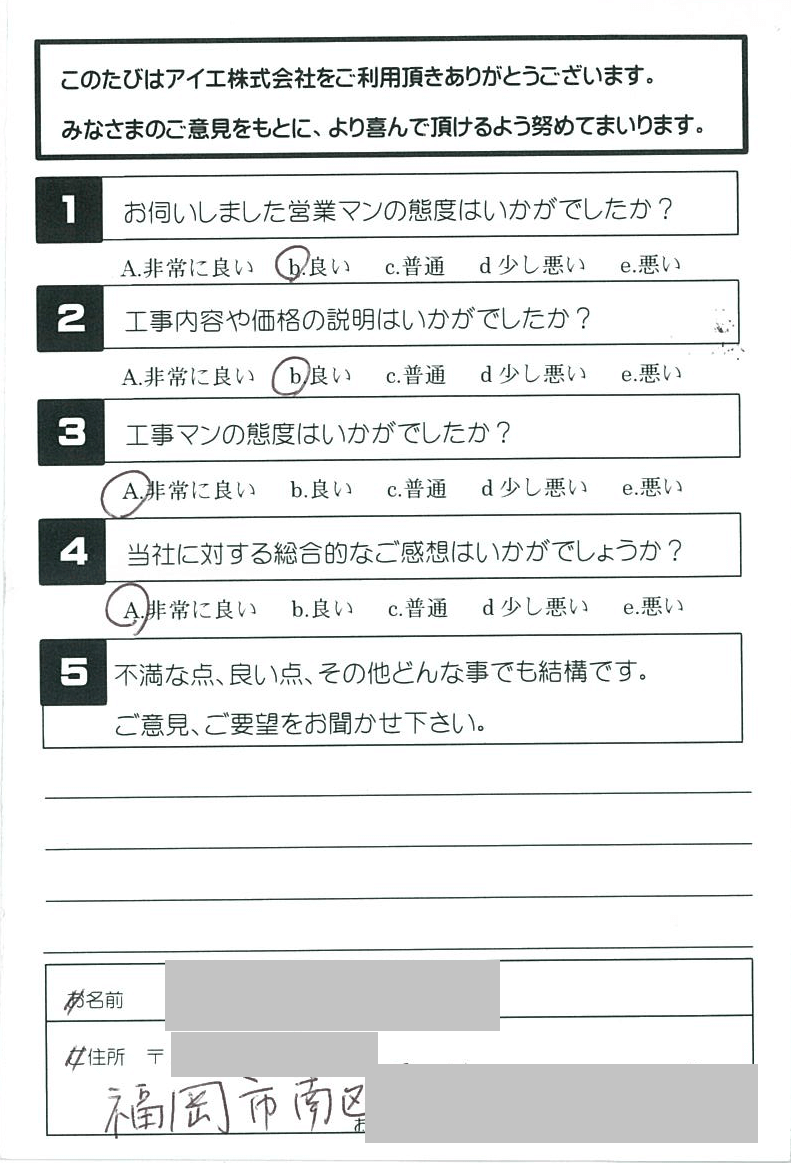 このたびはアイエ株式会社をご利用頂きありがとうございます。
みなさまのご意見をもとに、より喜んで頂けるよう努めてまいります。
1 お伺いしました営業マンの態度はいかがでしたか？
A.非常に良い b.良い c.普通 d 少し悪い e.悪い
2 工事内容や価格の説明はいかがでしたか？
A.非常に良い b.良い c.普通 d 少し悪い e.悪い
3 工事マンの態度はいかがでしたか？
A.非常に良い b.良い c.普通 d 少し悪い e.悪い
4 当社に対する総合的なご感想はいかがでしょうか？
A.非常に良い b.良い c.普通 d 少し悪い e.悪い
5 不満な点、良い点、その他どんな事でも結構です。
ご意見、ご要望をお聞かせ下さい。
お名前
住所 〒
福岡市南区
お